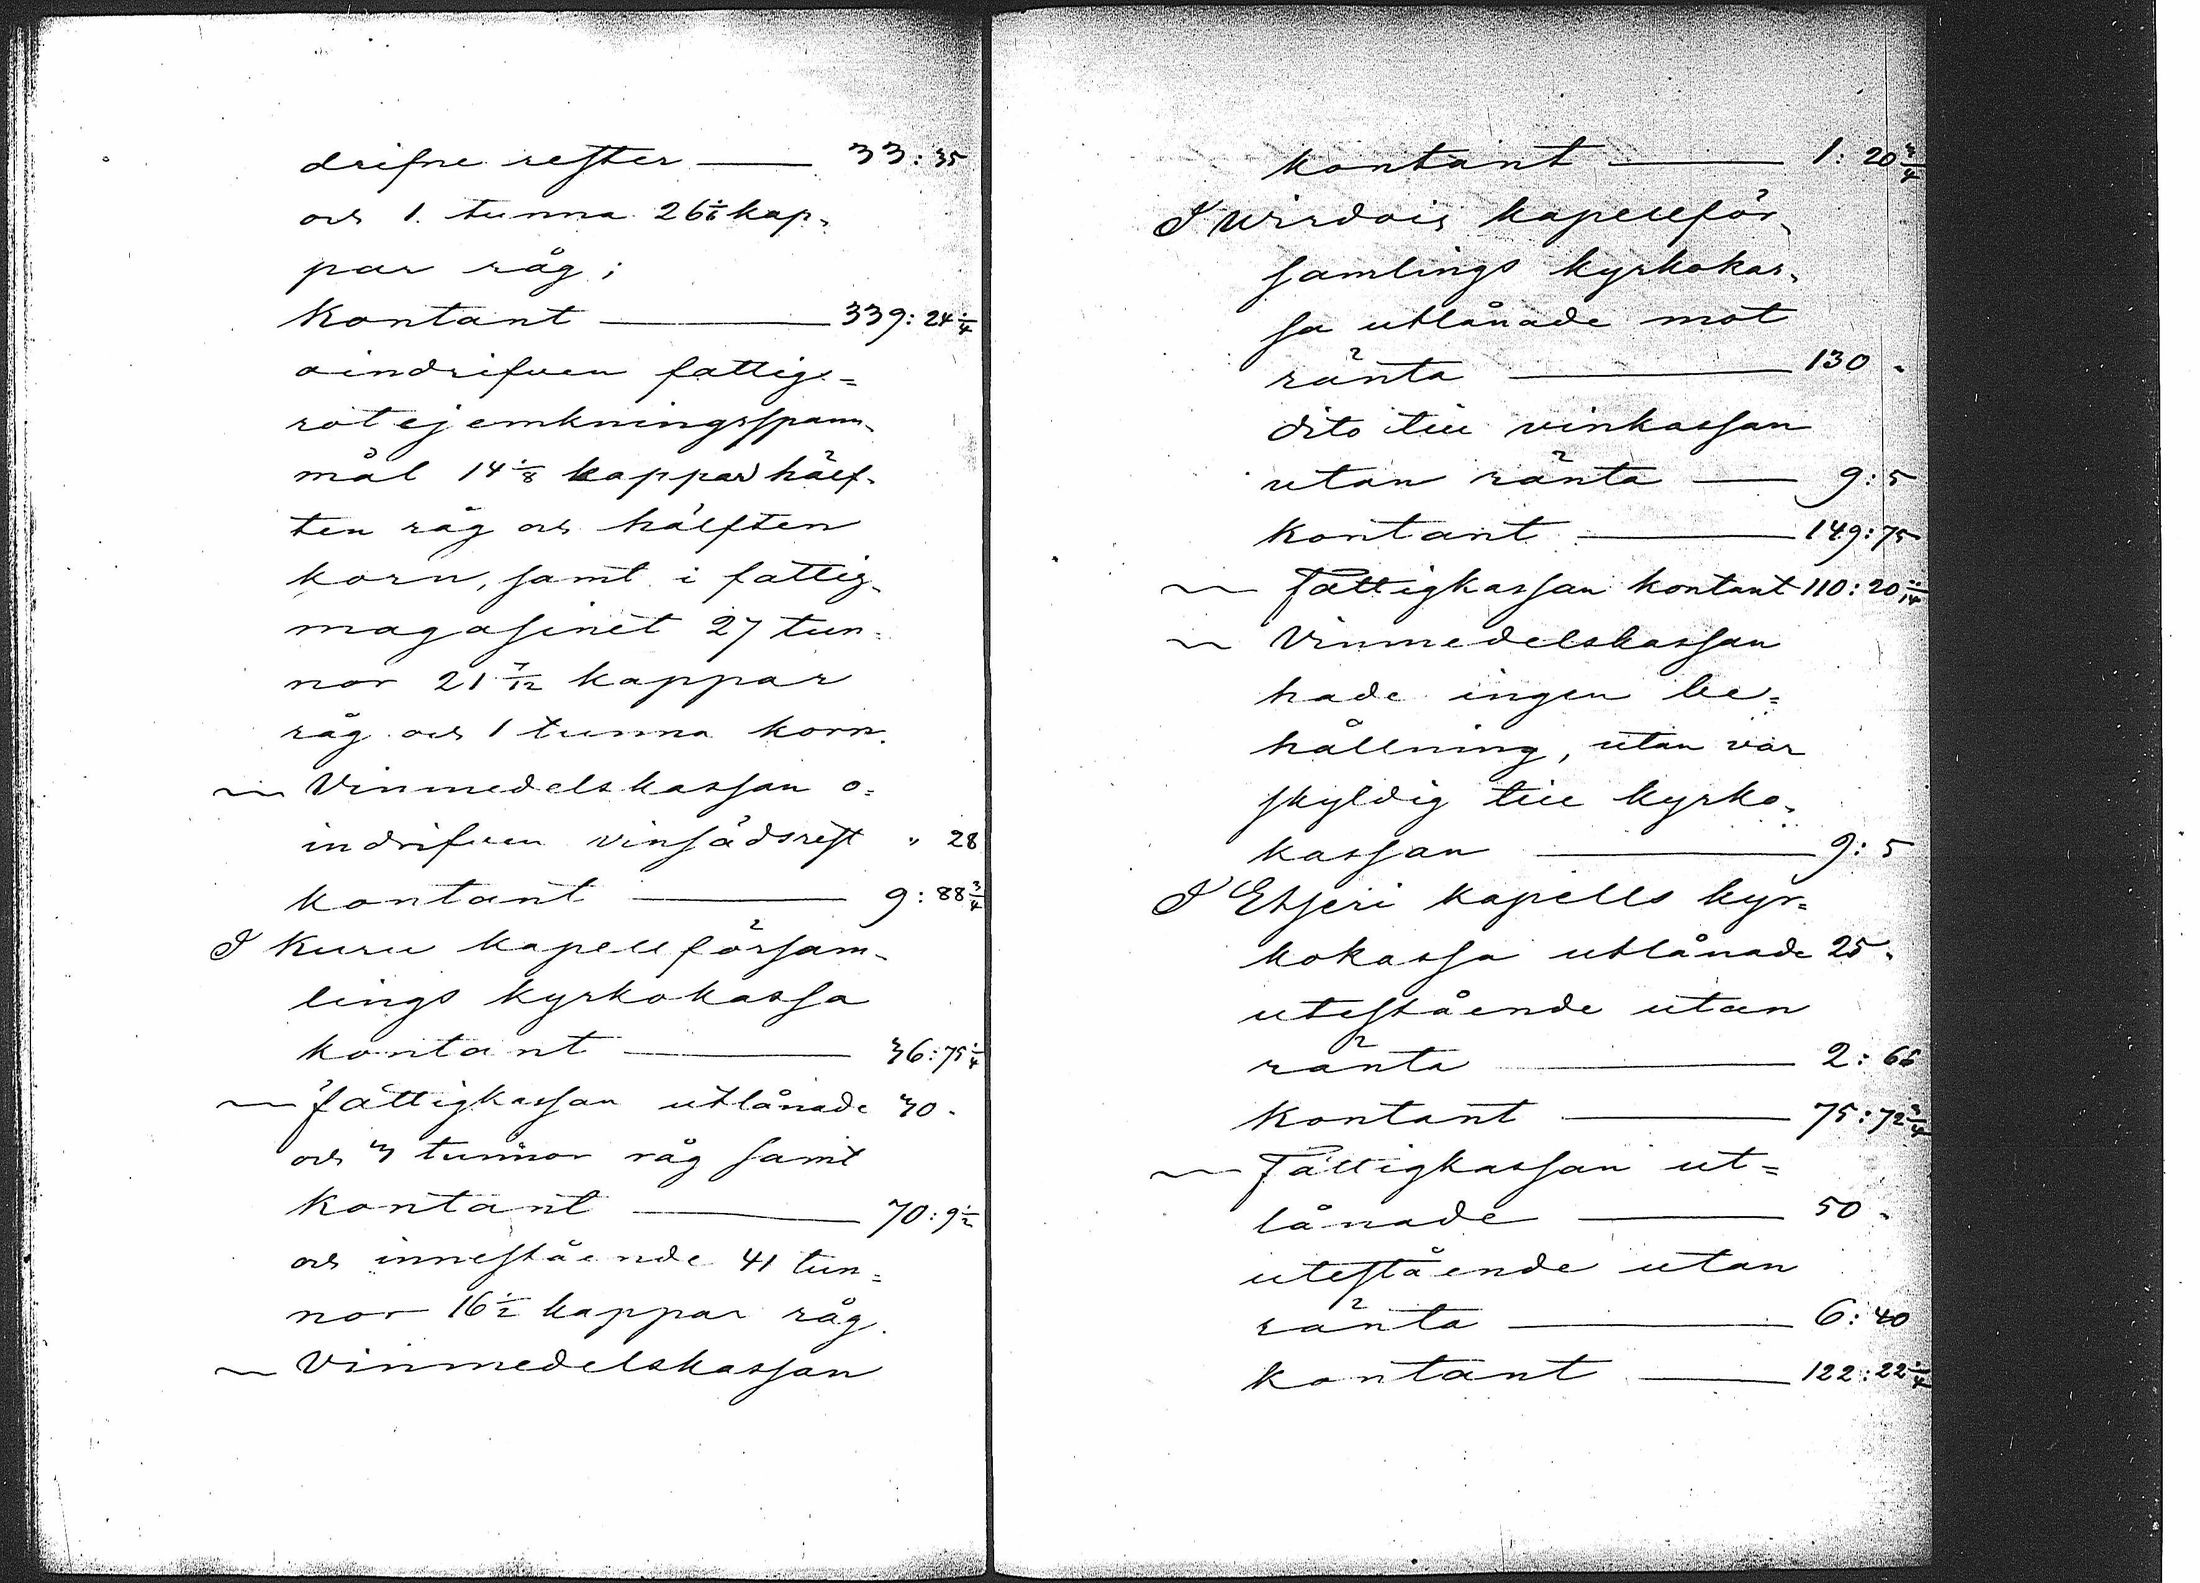 drifne rester — 33:35
och 1 tunna 26 1/6 kap-
par råg;
Kontant — 339:24 1/4
oindrifven fattig-
rotejemkningsspann-
mål 14 1/8 kappar hälf-
ten råg och hälften
korn, samt i fattig-
magasinet 27 tun-
nor 21 7/12 kappar
råg och 1 tunna korn.
〃 Vinmedelskassan o-
indrifven vinsädsrest " 28
kontant — 9:88 3/4
I Kuru kapellförsam-
lings kyrkokassa
kontant — 36:75 1/4
〃 Fattigkassan utlånade 30-
och 3 tunnor råg samt
Kontant — 70:9 1/2
och innestående 41 tun-
nor 16 1/2 kappar råg.
〃 Vinmedelskassan
kontant — 1:20 3/4
I Wirdois kapellför-
samlings kyrkokas-
sa utlånade mot
ränta — 130 -
dito till vinkassan
utan ränta — 9:5
Kontant — 149:75
〃 Fattigkassan kontant 110:20 11/14
〃 Vinmedelskassan
hade ingen be-
hållning, utan var
skyldig till kyrko-
kassan — 9:5
I Etseri kapells kyr-
kokassa utlånade 25 -
utestående utan
ränta — 2:66
Kontant — 75:72 3/4
〃 Fattigkassan ut-
lånade — 50 -
utestående utan
ränta — 6:40
kontant — 122:22 1/4